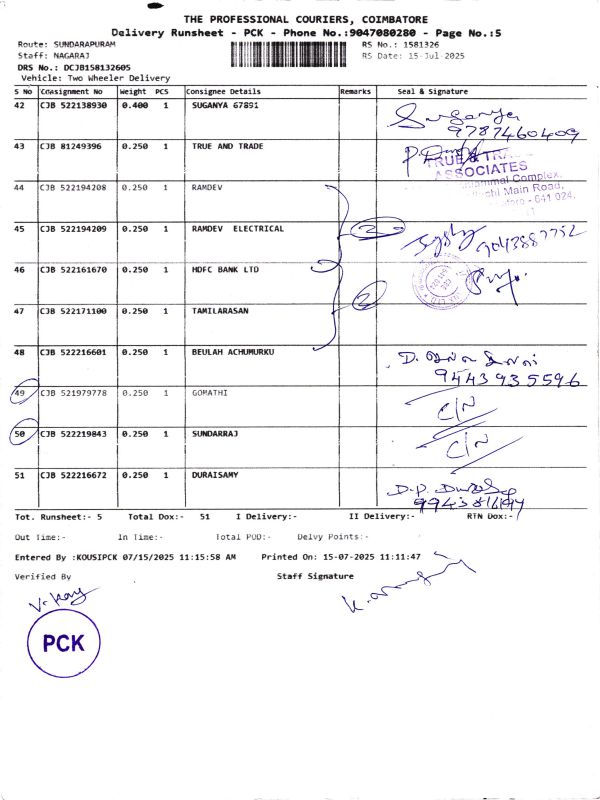 THE PROFESSIONAL COURIERS, COIMBATORE
Delivery Runsheet - PCK - Phone No.:9047080280 - Page No.:5
Route: SUNDARAPURAM RS No.: 1581326
Staff: NAGARAJ RS Date: 15-Jul-2025
DRS No.: DCJB158132605
Vehicle: Two Wheeler Delivery
S No Consignment No Weight PCS Consignee Details Remarks Seal & Signature
42 CJB 522138930 0.400 1 SUGANYA 67891 Suganya
9787460409
43 CJB 81249396 0.250 1 TRUE AND TRADE
TRUE & TRADE
ASSOCIATES
Complex,
Main Road,
- 641 024.
44 CJB 522194208 0.250 1 RAMDEV
45 CJB 522194209 0.250 1 RAMDEV ELECTRICAL 2 9043887752
46 CJB 522161670 0.250 1 HDFC BANK LTD
2
47 CJB 522171100 0.250 1 TAMILARASAN
48 CJB 522216601 0.250 1 BEULAH ACHUMURKU D.
9443935596
49 CJB 521979778 0.250 1 GOMATHI C/N
50 CJB 522219843 0.250 1 SUNDARRAJ C/N
51 CJB 522216672 0.250 1 DURAISAMY D.P.
Tot. Runsheet:- 5 Total Dox:- 51 I Delivery:- II Delivery:- RTN Dox:-
Out Time:- In Time:- Total POD:- Delvy Points:-
Entered By :KOUSIPCK 07/15/2025 11:15:58 AM Printed On: 15-07-2025 11:11:47
Verified By Staff Signature
PCK